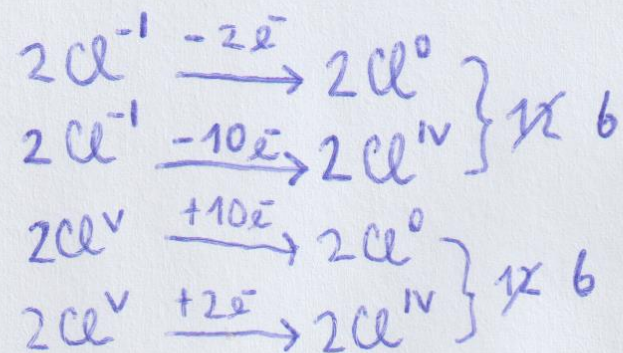 2Cl⁻ᴵ −2ē → 2Cl⁰
2Cl⁻ᴵ −10ē → 2Clᴵⱽ } 12 6
2Clⱽ +10ē → 2Cl⁰
2Clⱽ +2ē → 2Clᴵⱽ } 12 6